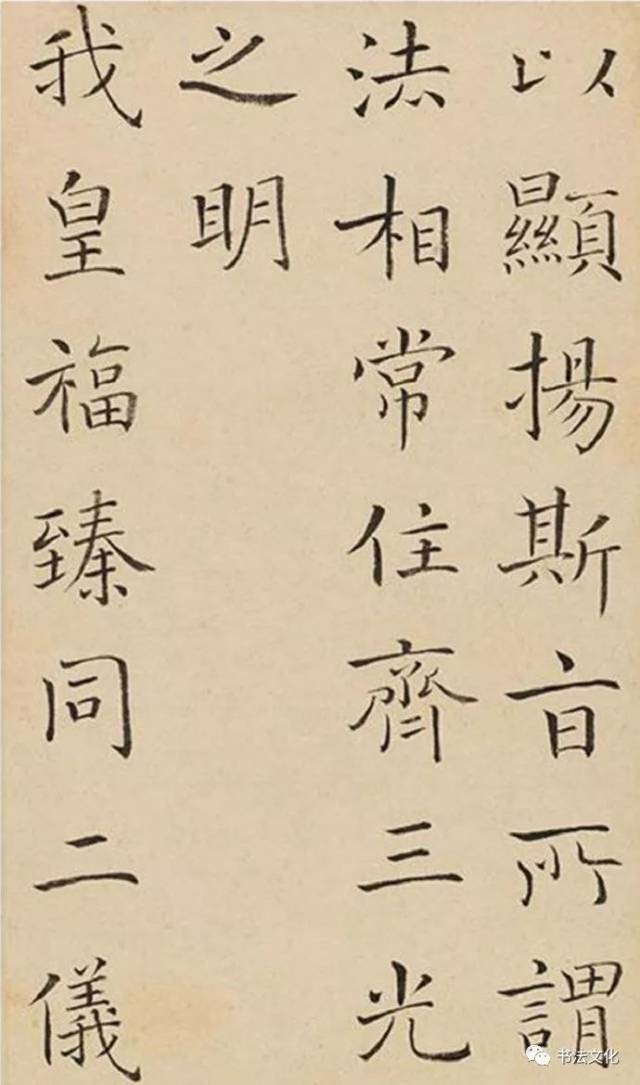 以顯揚斯旨所謂
法相常住齊三光
之明
我皇福臻同二儀
书法文化